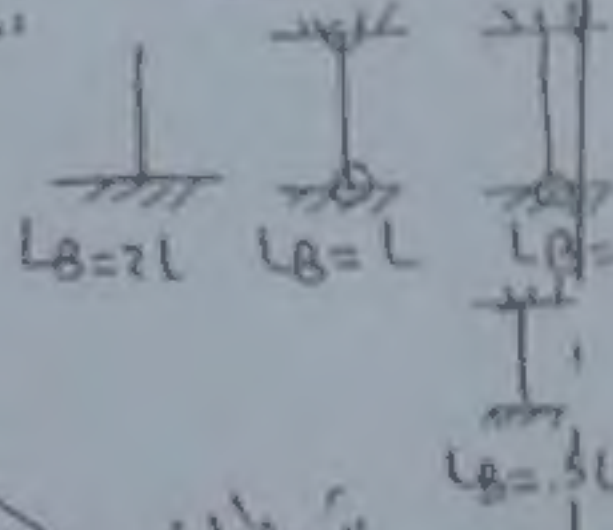 LB=2L LB= L LB=
LB=.5L